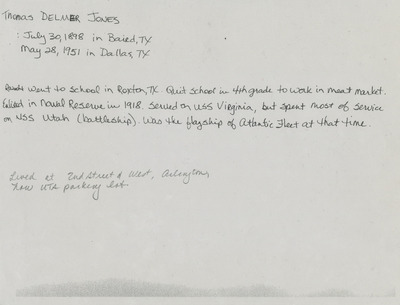 THOMAS DELMER JONES
: July 30, 1898 in Baird, TX
May 28, 1951 in Dallas, TX
went to school in Roxton, TX. Quit school in 4th grade to work in meat market.
Enlisted in Naval Reserve in 1918. Served on USS Virginia, but spent most of service
on USS Utah (battleship). Was the flagship of Atlantic Fleet at that time.
Lived at 2nd Street & West, Arlington,
now UTA parking lot